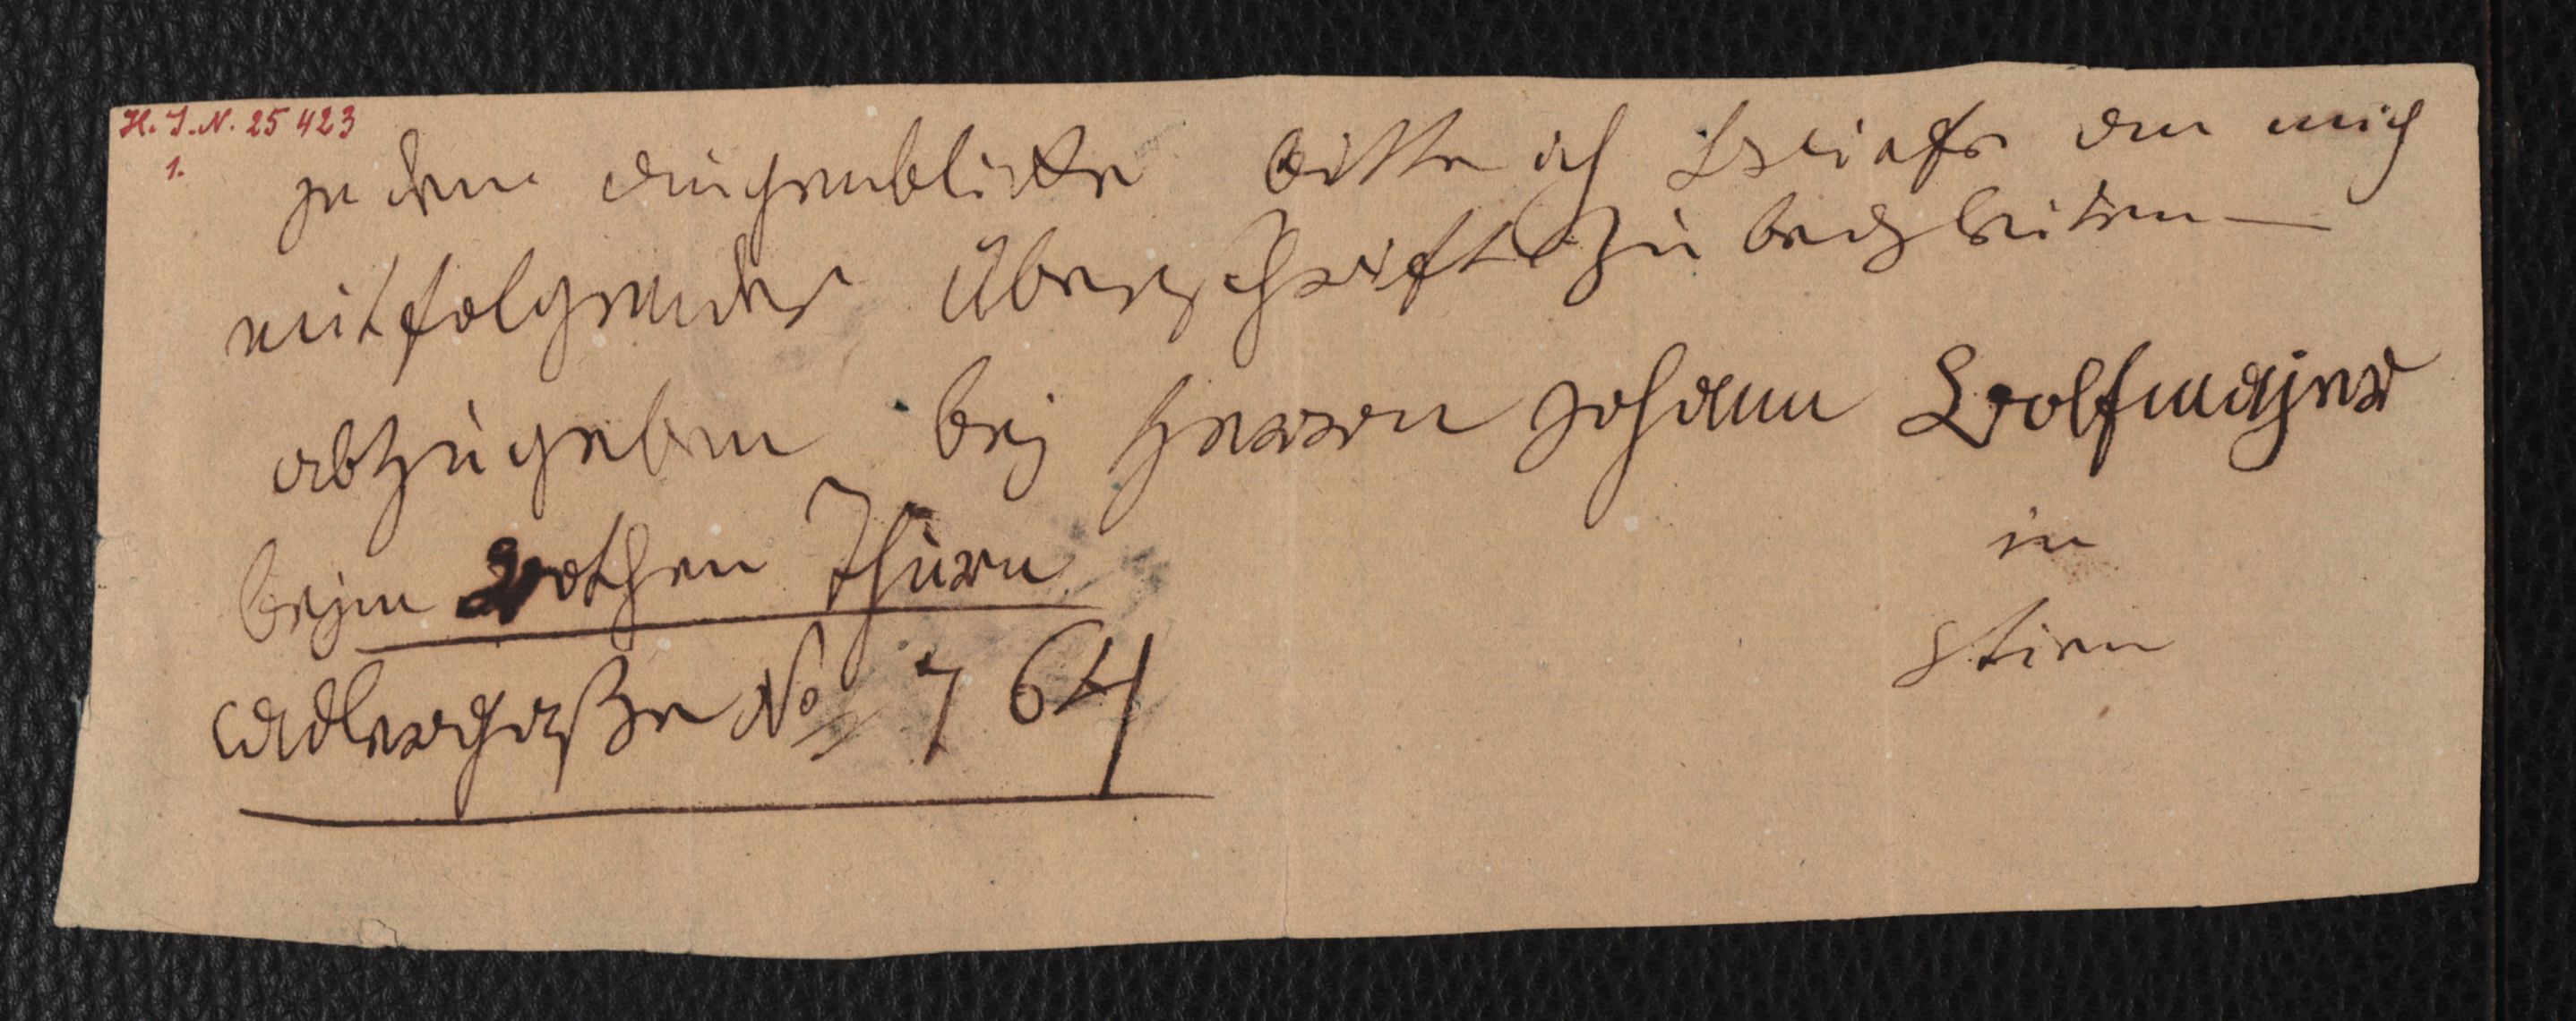 H. I. N. 25 423
1.
jedem augenblicke bitte ich Briefe an mich
mit folgender Überschrift zu begleiten —
abzugeben bej Herrn johann Wolfmajer
bejm rothen Thurn in
adlergaße No 764